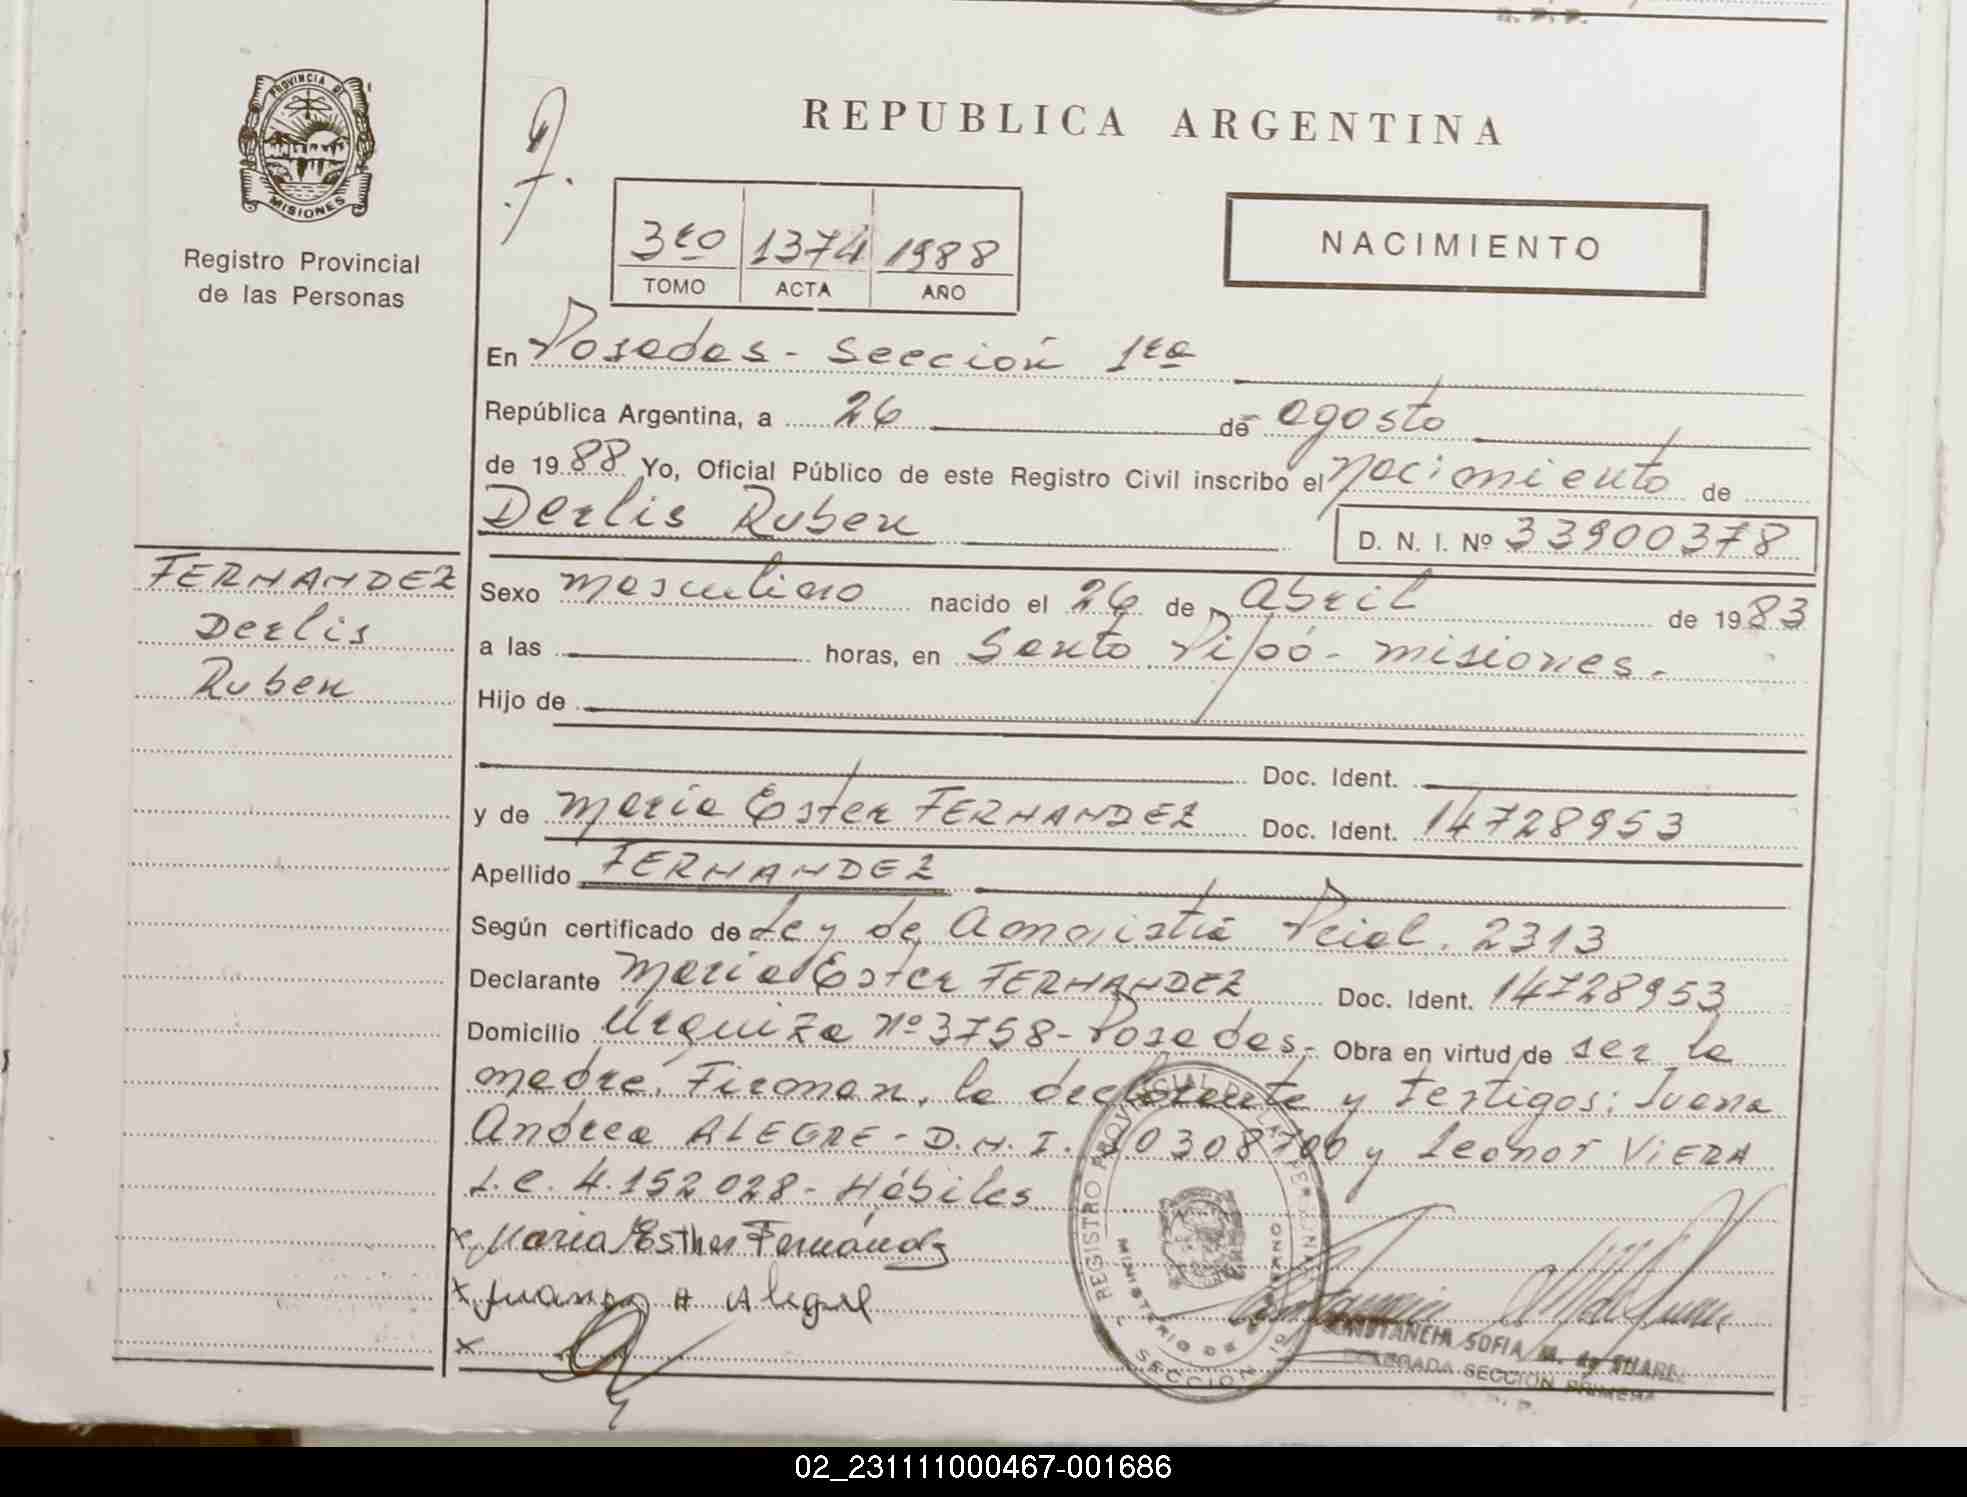 PROVINCIA DE
MISIONES
Registro Provincial
de las Personas
REPUBLICA ARGENTINA
3ro 1374 1988
TOMO ACTA AÑO
NACIMIENTO
En Posadas - Sección 1ra
República Argentina, a 26 de agosto
de 1988 Yo, Oficial Público de este Registro Civil inscribo el nacimiento de
Derlis Ruben
D. N. I. Nº 33900378
FERNANDEZ
Derlis
Ruben
Sexo masculino nacido el 26 de abril de 1983
a las horas, en Santo Pipó - misiones.
Hijo de
Doc. Ident.
y de maria Ester FERNANDEZ Doc. Ident. 14728953
Apellido FERNANDEZ
Según certificado de Ley de Amnistia Pcial. 2313
Declarante maria Ester FERNANDEZ Doc. Ident. 14728953
Domicilio Urquiza nº 3758 - Posadas,- Obra en virtud de ser la
madre. Firman, la declarante y testigos: Juana
Andrea ALEGRE - D.N.I. 10308700 y Leonor VIERA
L.C. 4.152.028 - Hábiles
x Maria Esther Fernández
x Juana A Alegre
x
REGISTRO PROVINCIAL DE LAS PERSONAS
MINISTERIO DE GOBIERNO
SECCION 1a
CONSTANCIA SOFIA M. de SUAREZ
DELEGADA SECCION PRIMERA
R. P. P.
02_231111000467-001686